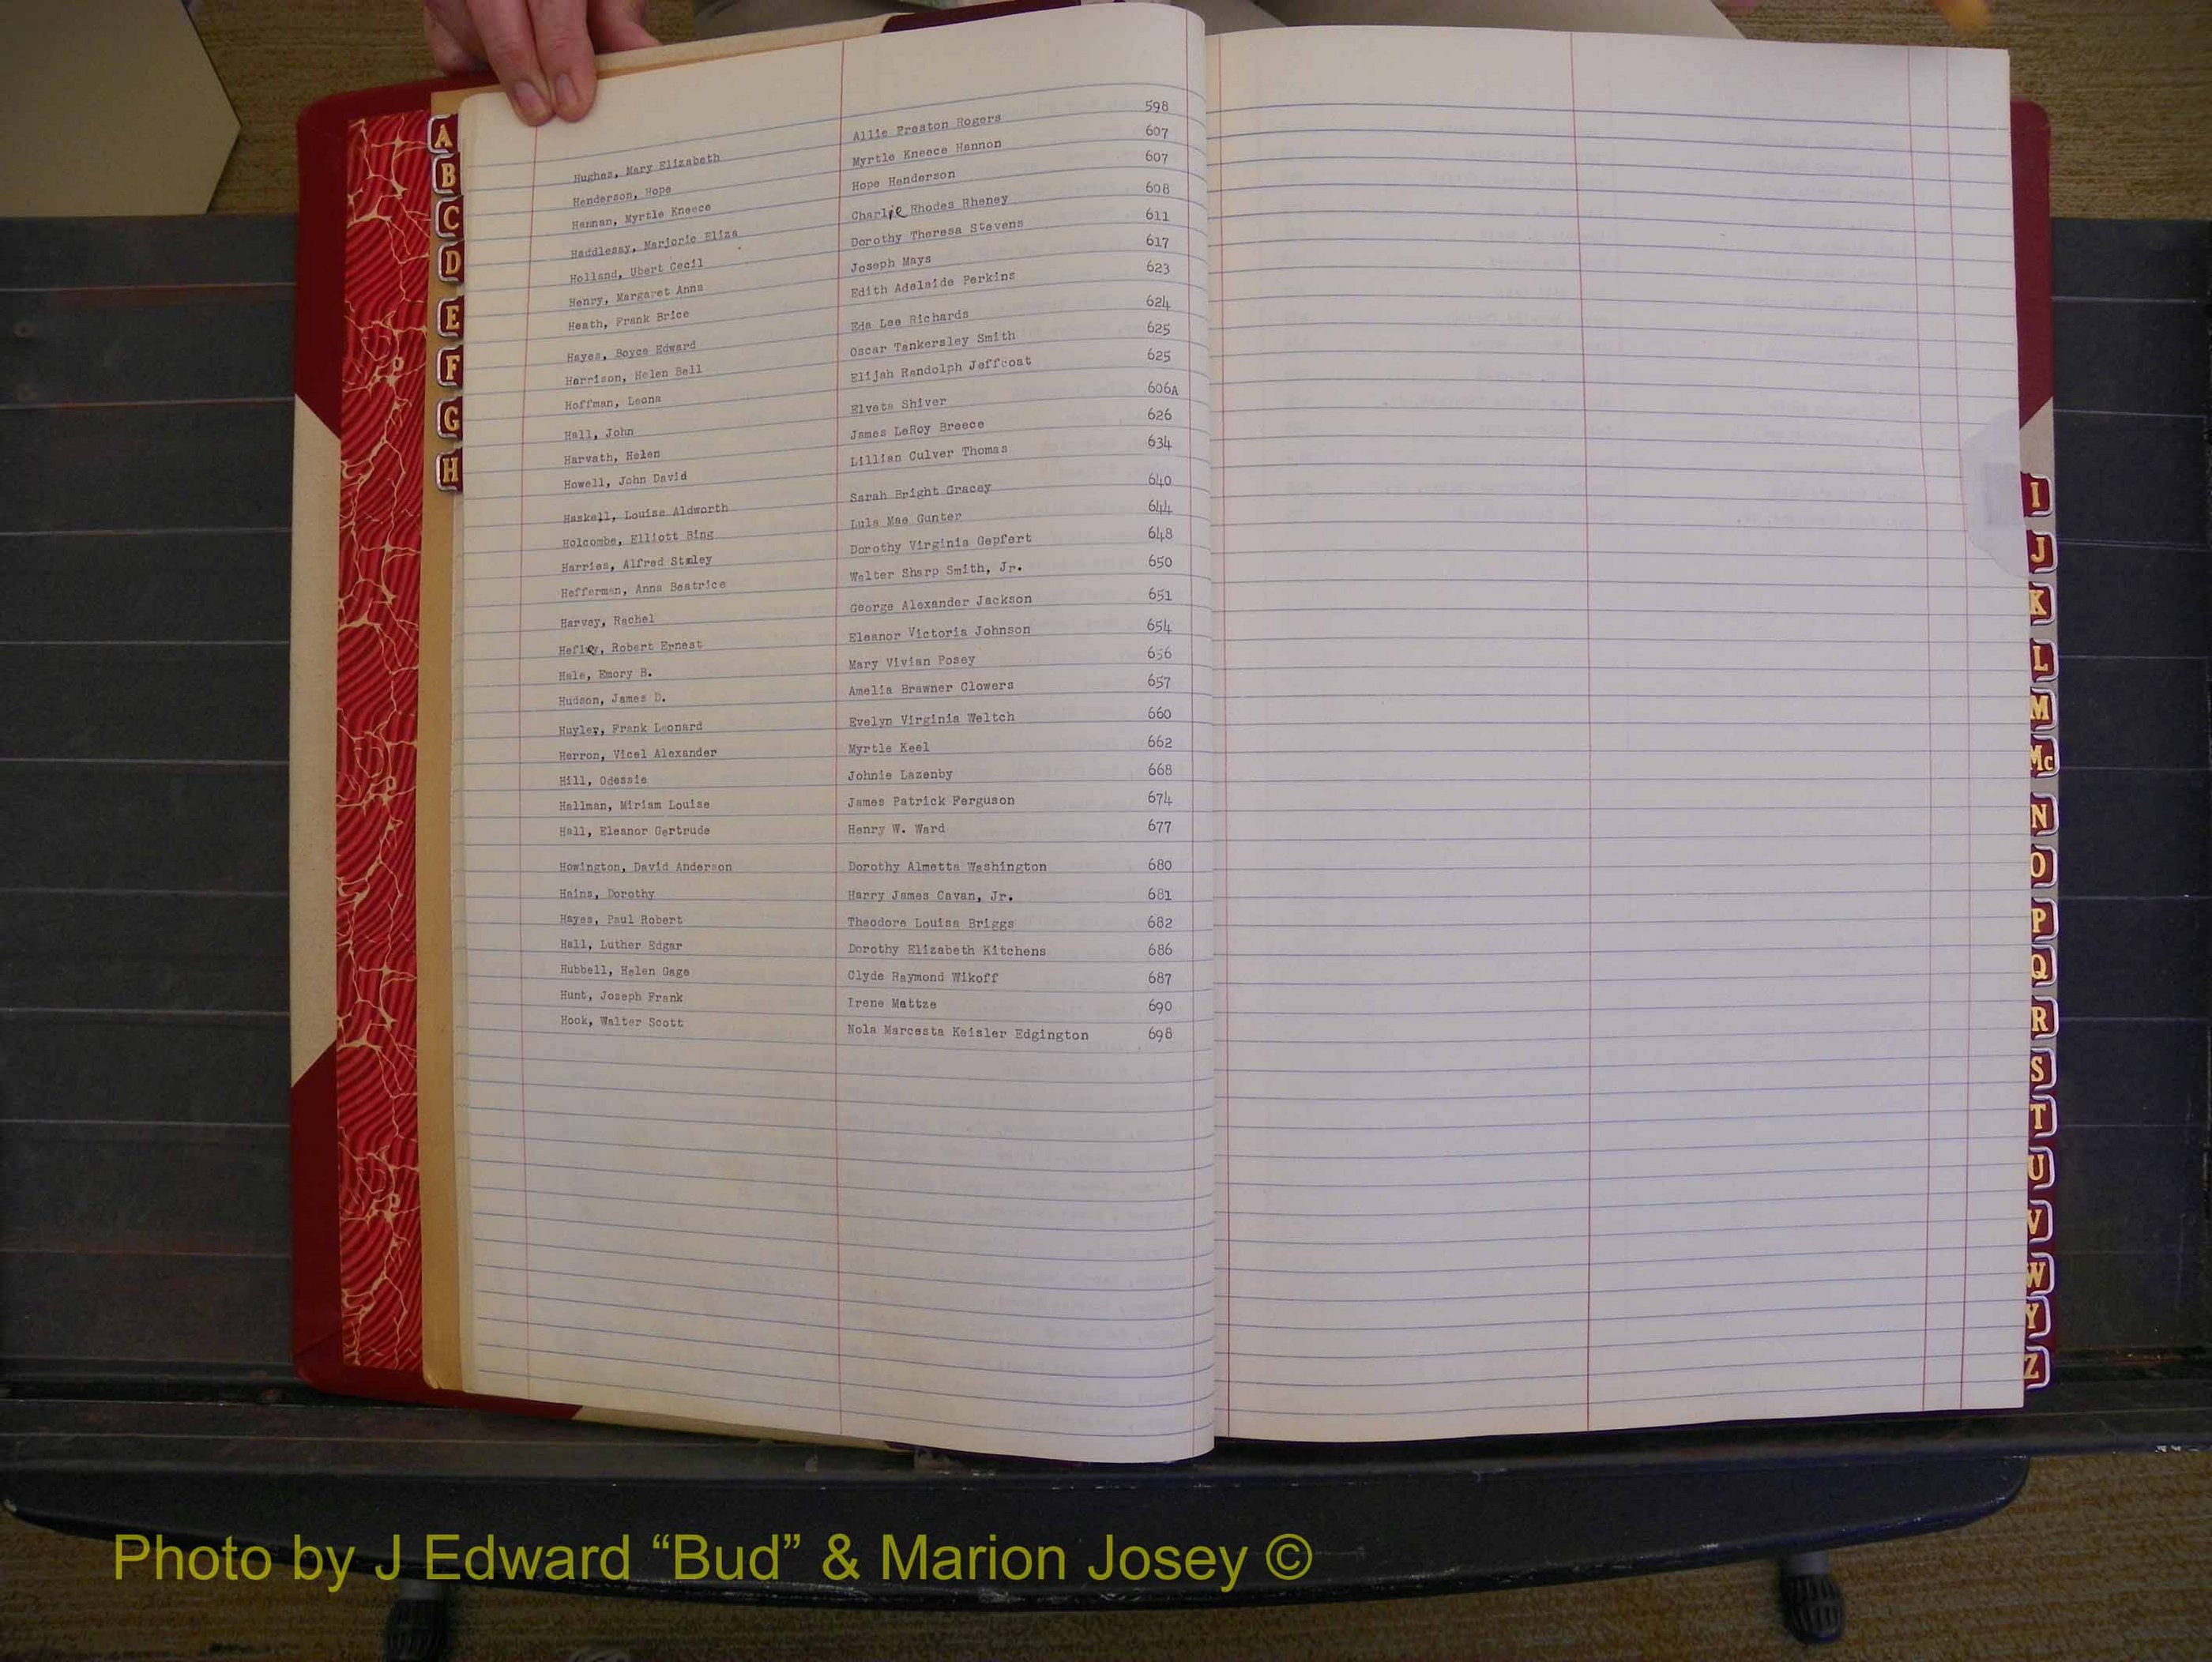 Hughes, Mary Elizabeth Allie Preston Rogers 598
Henderson, Hope Myrtle Kneece Hannon 607
Hannan, Myrtle Kneece Hope Henderson 607
Haddlesay, Marjorie Eliza Charlie Rhodes Rheney 608
Holland, Ubert Cecil Dorothy Theresa Stevens 611
Henry, Margaret Anna Joseph Mays 617
Heath, Frank Brice Edith Adelaide Perkins 623
Hayes, Boyce Edward Eda Lee Richards 624
Harrison, Helen Bell Oscar Tankersley Smith 625
Hoffman, Leona Elijah Randolph Jeffcoat 625
Hall, John Elveta Shiver 606A
Harvath, Helen James LeRoy Breece 626
Howell, John David Lillian Culver Thomas 634
Haskell, Louise Aldworth Sarah Bright Gracey 640
Holcombe, Elliott Bing Lula Mae Gunter 644
Harries, Alfred Stanley Dorothy Virginia Gepfert 648
Hefferman, Anna Beatrice Walter Sharp Smith, Jr. 650
Harvey, Rachel George Alexander Jackson 651
Hefley, Robert Ernest Eleanor Victoria Johnson 654
Hale, Emory B. Mary Vivian Posey 656
Hudson, James D. Amelia Brawner Clowers 657
Huyler, Frank Leonard Evelyn Virginia Weltch 660
Herron, Vicel Alexander Myrtle Keel 662
Hill, Odessie Johnie Lazenby 668
Hallman, Miriam Louise James Patrick Ferguson 674
Hall, Eleanor Gertrude Henry W. Ward 677
Howington, David Anderson Dorothy Almetta Washington 680
Hains, Dorothy Harry James Cavan, Jr. 681
Hayes, Paul Robert Theodore Louisa Briggs 682
Hall, Luther Edgar Dorothy Elizabeth Kitchens 686
Hubbell, Helen Gage Clyde Raymond Wikoff 687
Hunt, Joseph Frank Irene Mattze 690
Hook, Walter Scott Nola Marcesta Keisler Edgington 698
A
B
C
D
E
F
G
H
I
J
K
L
M
Mc
N
O
P
Q
R
S
T
U
V
W
Y
Z
Photo by J Edward “Bud” & Marion Josey ©